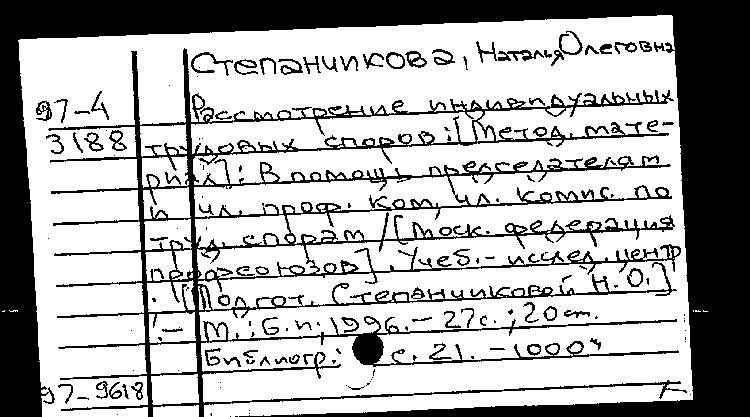 Степанчикова, Наталья Олеговна
97-4 Рассмотрение индивидуальных
3188 трудовых споров: [Метод. мате-
риал]: В помощь председателям
и чл. проф. ком, чл. комис. по
труд. спорам / [Моск. федерация
профсоюзов]. Учеб.- исслед. центр
. [Подгот. Степанчиковой Н.О.]
.- М.: Б.и; 1996. - 27с.; 20 см.
Библиогр.: с. 21. - 1000
97-9618